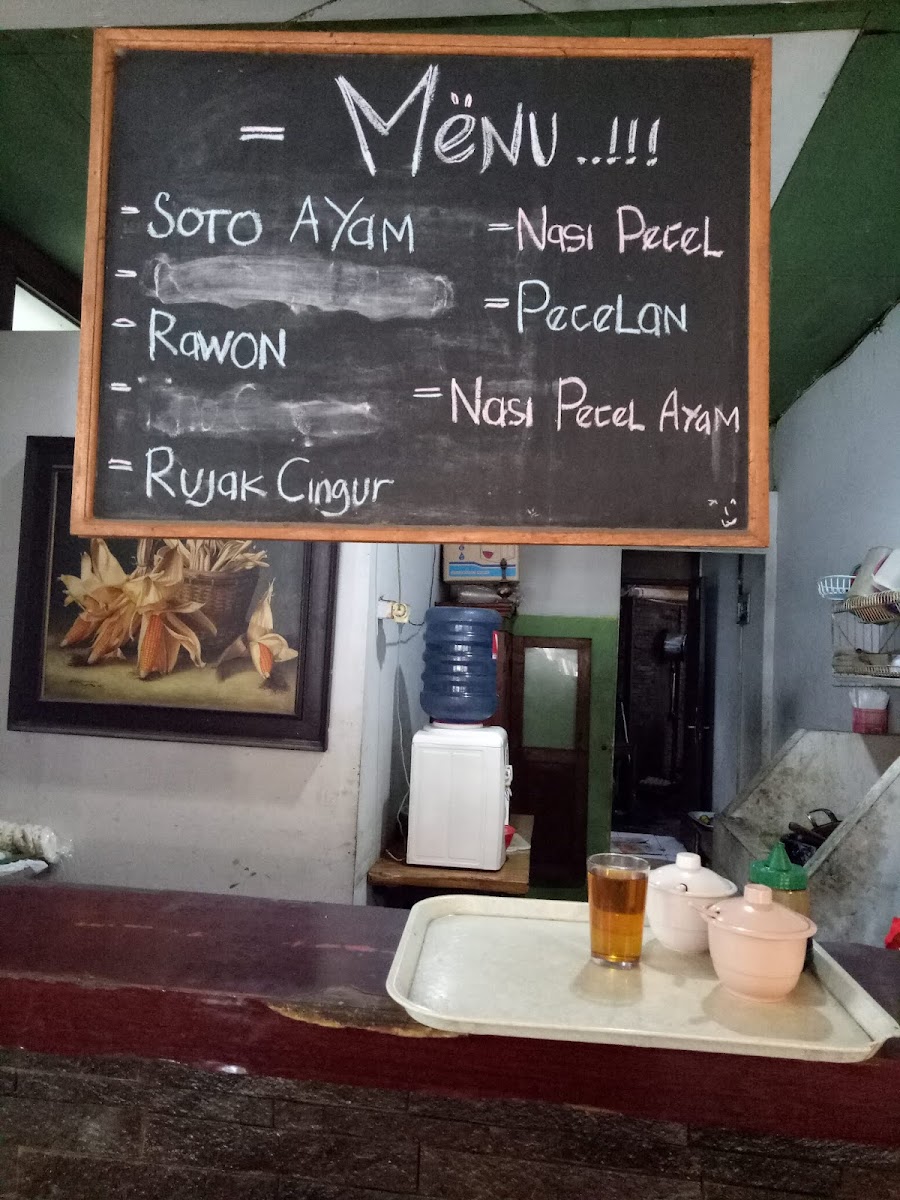 = MëNU ..!!!
= SOTO AYAM
=
= RAWON
=
= RUJAK CINGUR
= NASI PECEL
= PECELAN
= NASI PECEL AYAM